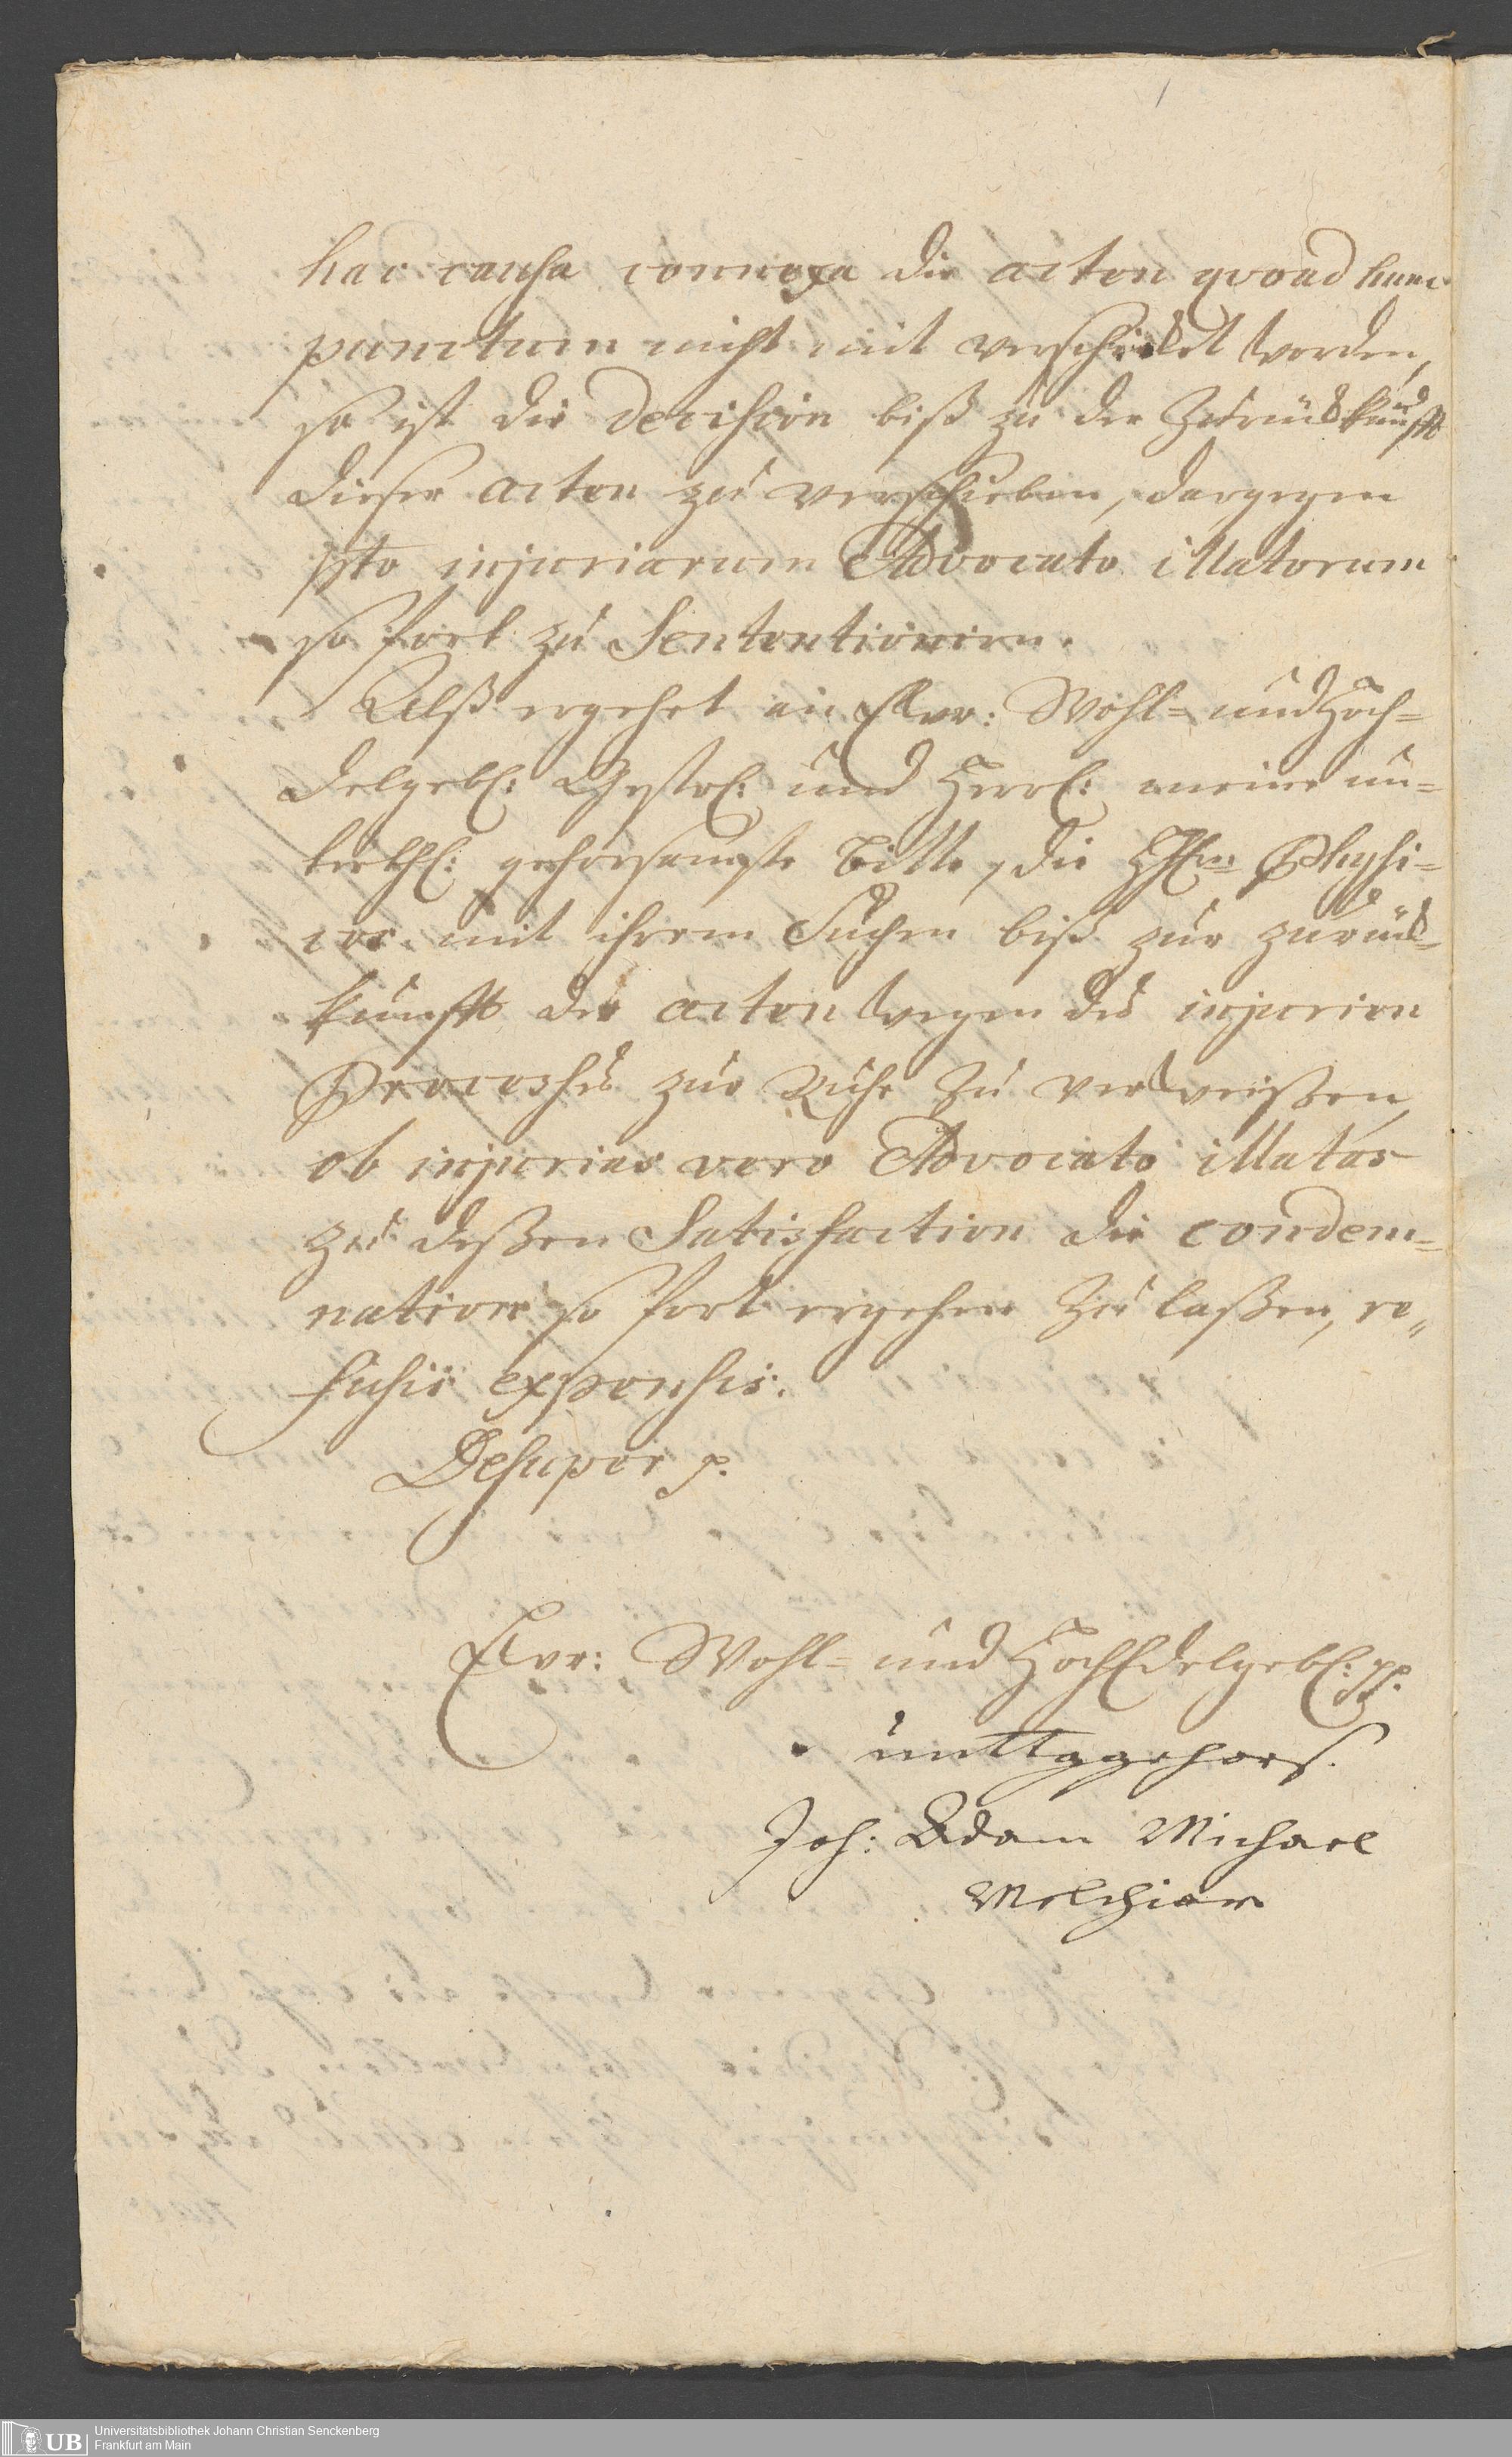 hac causa connexa die acten qvoad hunc
punctum nicht mit verschicket worden,
so ist die decision biß zu der Zurückkunfft
dieser acten zu verschieben, dargegen
pto injuriarum Advocato illatorum
so fort zu Sententioniren.
Alß ergehet an Ewr: Wohl= und Hoch=
Edelgebl: Gestrl: und Herrl: meine un=
terthl: gehorsamste Bitte, die HHen Physi=
cos mit ihrem Suchen biß zur zurück=
kunfft der acten wegen des injurien
Processus zur Ruhe zu verweißen,
ob injurias vero Advocato illatas
zu deßen Satisfaction die condem=
nation so fort ergehen zu laßen, re„
fusis expensis.
Desuper p.
Ewr: Wohl= und HochEdelgebl: pp.
Joh: Adam Michael
Melchior
Universitätsbibliothek Johann Christian Senckenberg
Frankfurt am Main
UB